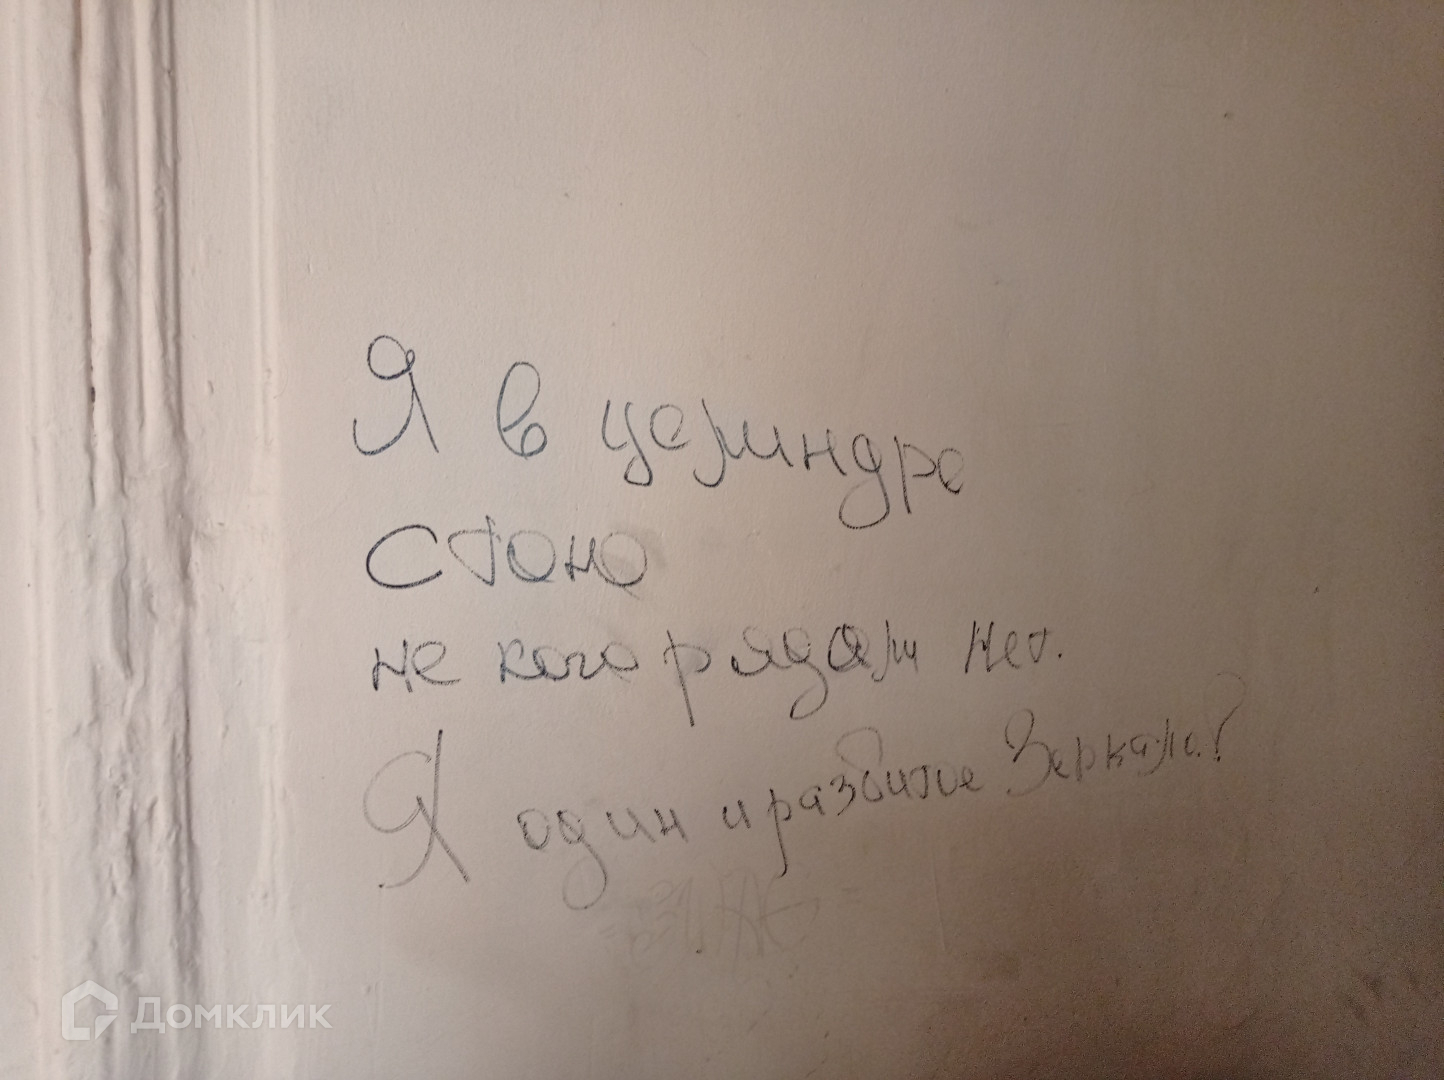 Я в целиндре
стою
не кого рядом нет.
Я один и разбитое Зеркало?
Домклик